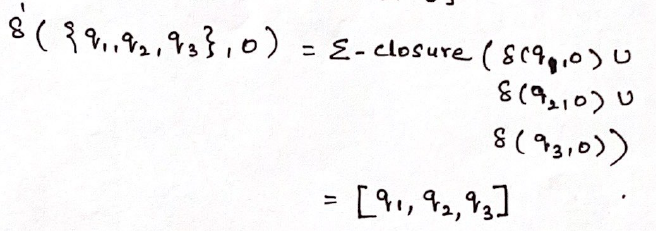 δ'({q₁,q₂,q₃},0) = Σ-closure (δ(q₁,0) ∪
δ(q₂,0) ∪
δ(q₃,0))
= [q₁, q₂, q₃]